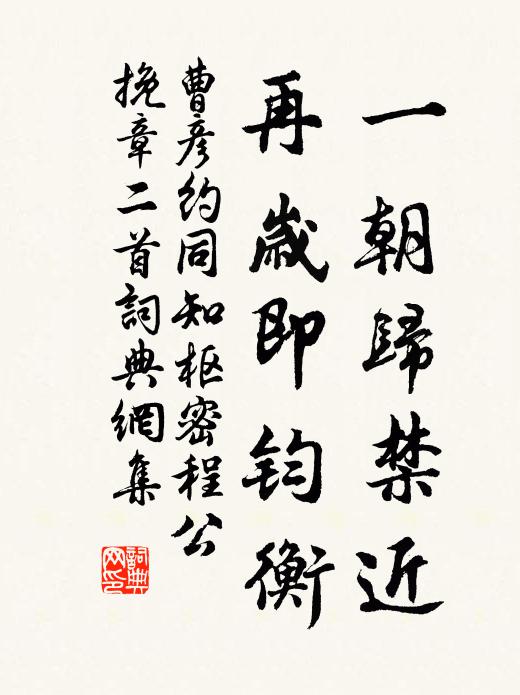 一朝歸禁近
再歲即鈞衡
曹彥約同知枢密程公
挽章二首詞典網集
詞典网印